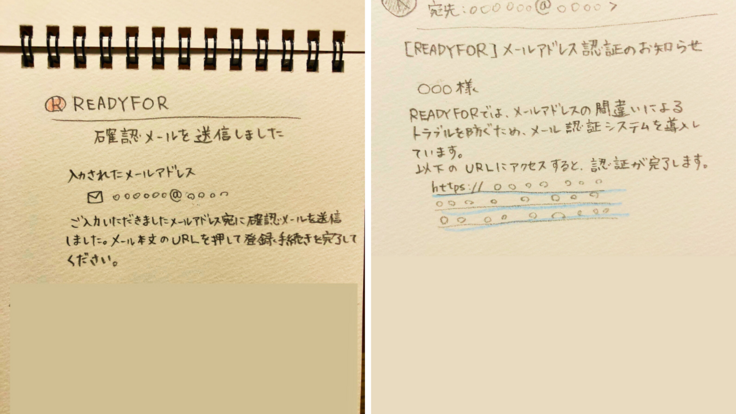 R READYFOR
確認メールを送信しました
入力されたメールアドレス
○○○○○○@○○○○
ご入力いただきましたメールアドレス宛に確認メールを送信
しました。メール本文のURLを押して登録手続きを完了して
ください。
宛先:○○○○○○@○○○○>
[READYFOR]メールアドレス認証のお知らせ
○○○様、
READYFORでは、メールアドレスの間違いによる
トラブルを防ぐため、メール認証システムを導入し
ています。
以下のURLにアクセスすると、認証が完了します。
https://○○○○○○○
○○○○○○○○
○○○○○○○○○